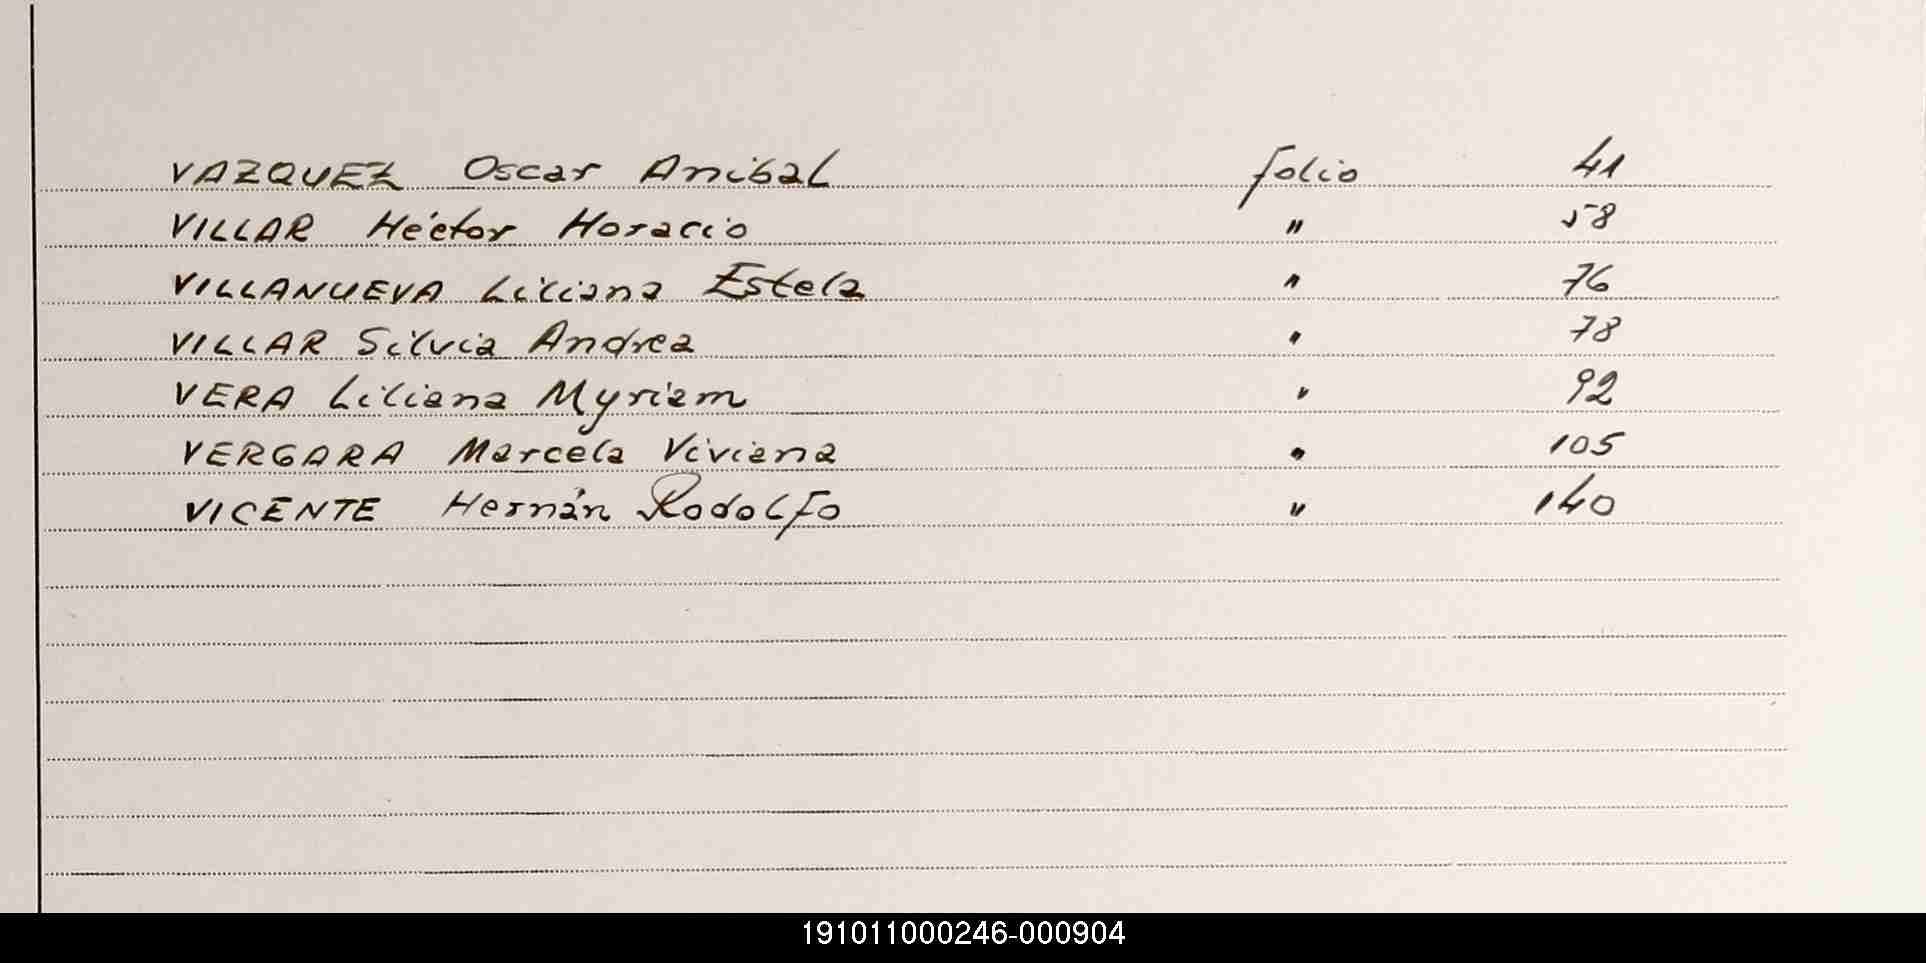 VAZQUEZ Oscar Anibal folio 41
VILLAR Héctor Horacio " 58
VILLANUEVA Liliana Estela " 76
VILLAR Silvia Andrea " 78
VERA Liliana Myriam " 92
VERGARA Marcela Viviana " 105
VICENTE Hernán Rodolfo " 140
191011000246-000904